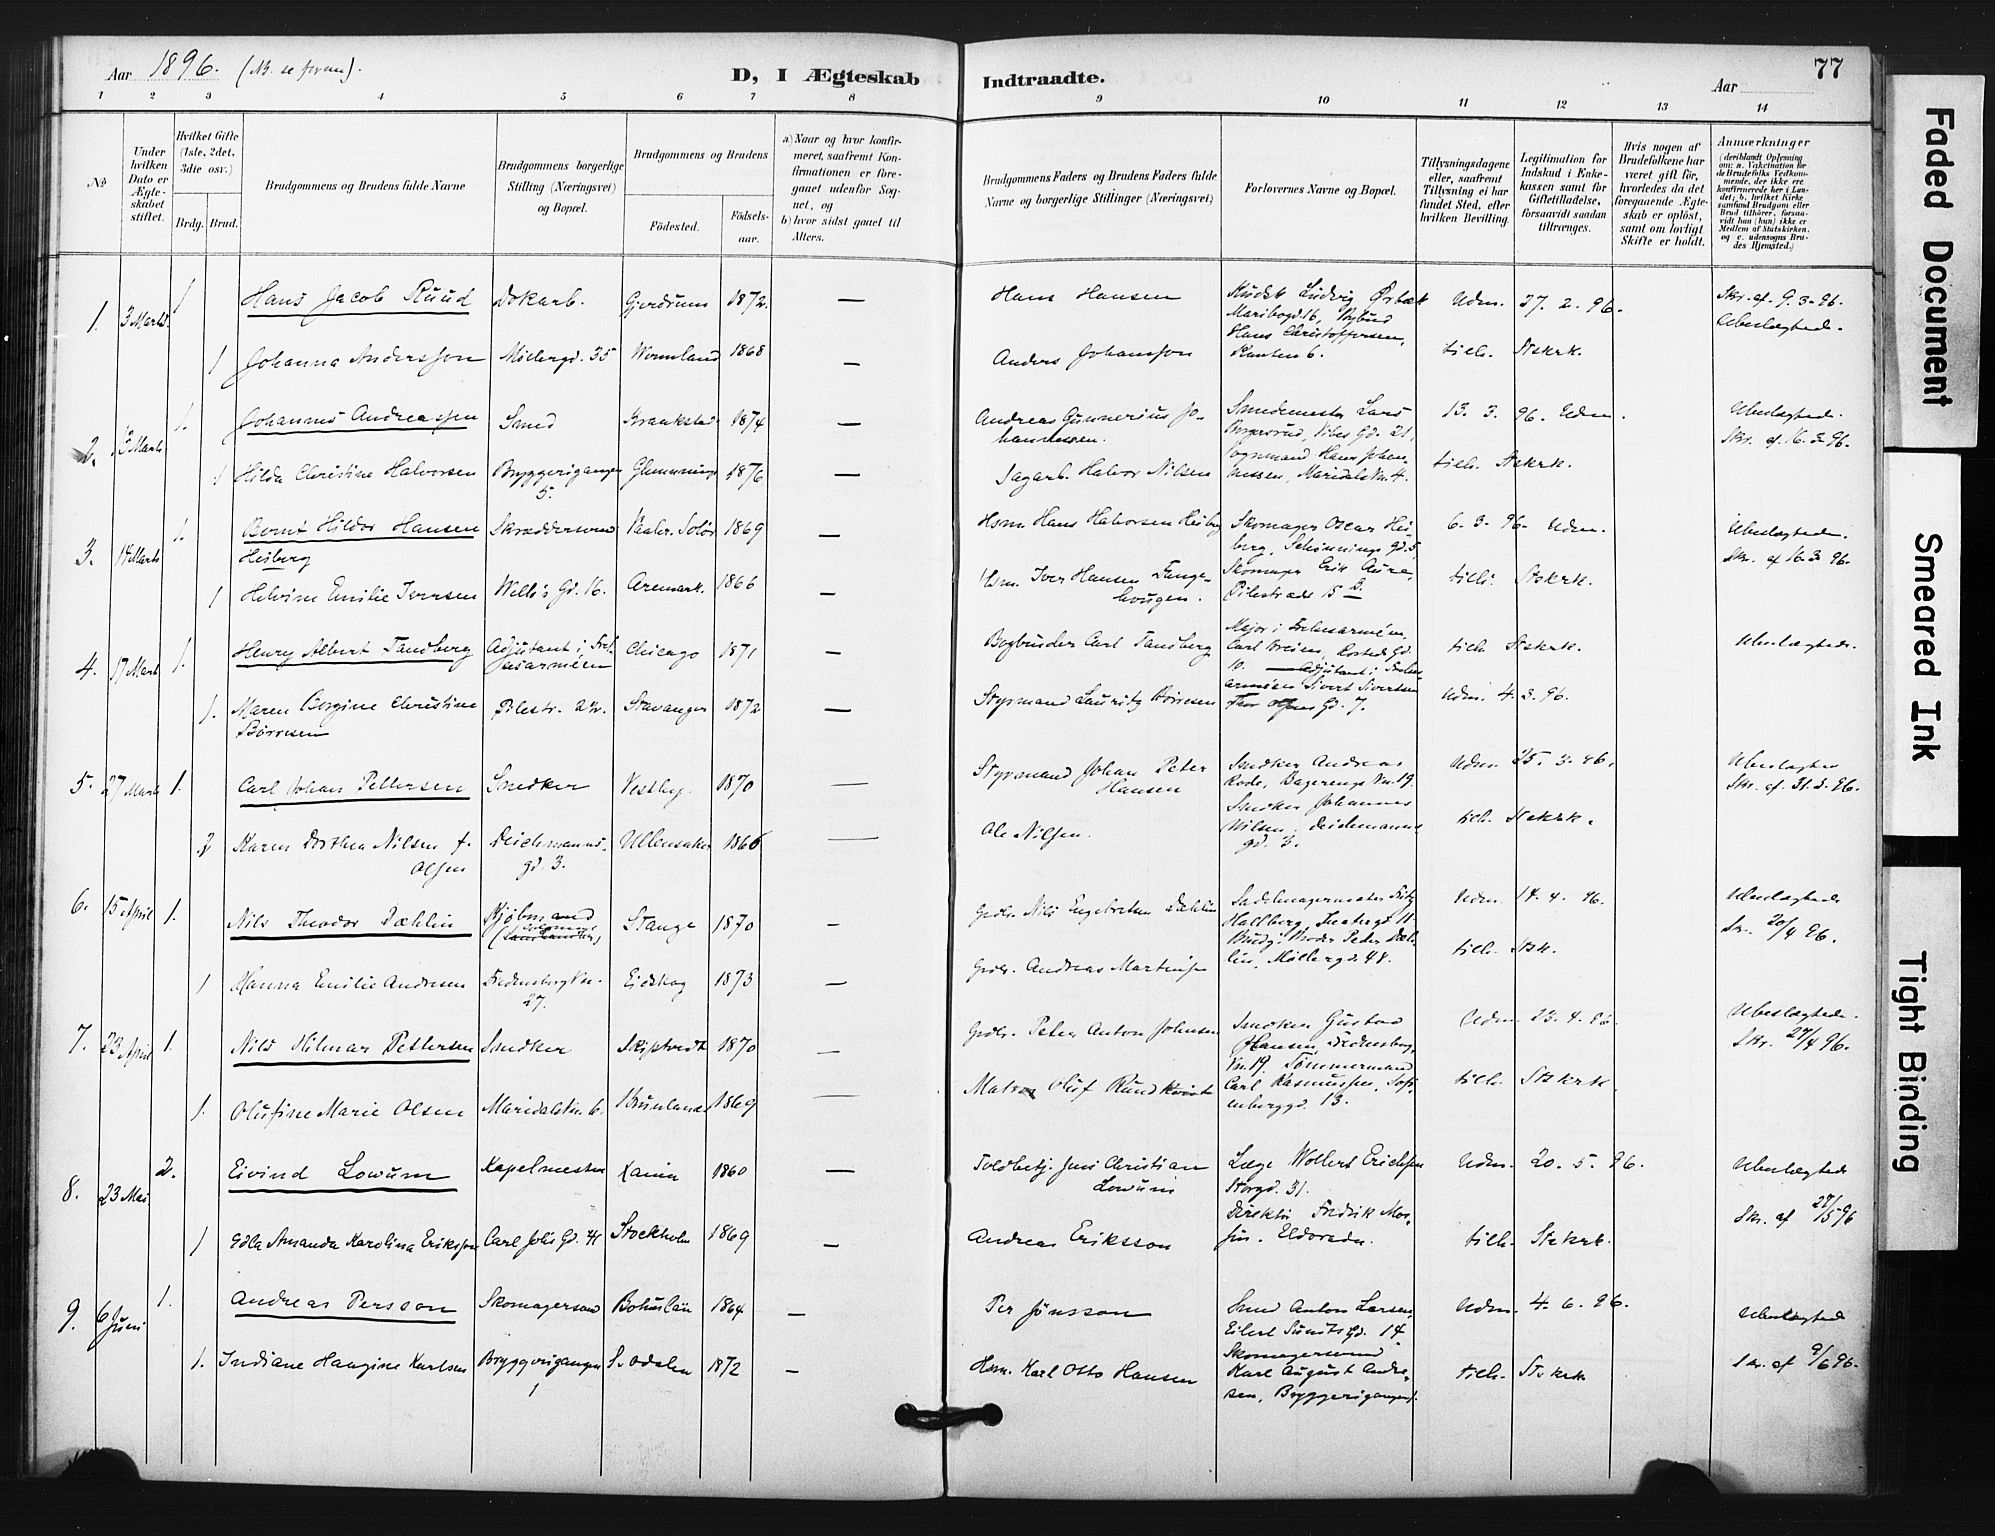 Aar 1896.
D, I Ægteskab Indtraadte.
Aar
77
1 2 3 4 5 6 7 8 9 10 11 12 13 14
No
Under hvilken Dato er Ægteskabet stiftet.
Hvilket Gifte (1ste, 2det, 3die osv.)
Brdg. Brud.
Brudgommens og Brudens fulde Navne
Brudgommens borgerlige Stilling (Næringsvei) og Bopæl.
Brudgommens og Brudens
Fødested.
Fødselsaar.
a) Naar og hvor konfirmeret, saafremt Konfirmationen er foregaaet udenfor Sognet, og
b) hvor sidst gaaet til Alters.
Brudgommens Faders og Brudens Faders fulde Navne og borgerlige Stillinger (Næringsvei)
Forlovernes Navne og Bopæl.
Tillysningsdagene eller, saafremt Tillysning ei har fundet Sted, efter hvilken Bevilling.
Legitimation for Indskud i Enkekassen samt for Giftetilladelse, forsaavidt saadan tiltrænges.
Hvis nogen af Brudefolkene har været gift før, hvorledes da det foregaaende Ægteskab er opløst, samt om lovligt Skifte er holdt.
Anmærkninger
(deriblandt Oplysning om: a. Vakcination for de Brudefolks Vedkommende, der ikke ere konfirmerede her i Landet; b. hvilket Kirkesamfund Brudgom eller Brud tilhører, forsaavidt han (hun) ikke er Medlem af Statskirken. og c. udensogns Brudes Hjemsted.)
1. 3 Marts 1 Hans Jacob Ruud Dokarb. Gjerdrum 1872. — Hans Hansen
Ludvig
Maribogd 16,
Hans Christoffersen,
Udm. 27. 2. 96. Skr. af 9. 3. 96.
Ubeslægtede.
1 Johanna Andersson Møllergd. 35 Wermland 1868 — Anders Johansson tilh. Stskrk.
2. 13 Marts 1. Johannes Andreassen Smed 1874 — Andreas Gunnerius Johannessen.
Smedemester Lars
Vibes Gd. 21,
13. 3. 96. Udm. Ubeslægtede.
Skr. af 16. 3. 96.
1 Hilda Christine Halvorsen Bryggerigangen 5. Glemminge 1876 — Sagarb. Halvor Nilsen
Hans Johannessen, Maridalsvn. 4.
tilh. Stskrk.
3. 14 Marts 1. Bernt Hildor Hansen Heiberg Skræddersvend Vaaler Solør 1869 — Hsm. Hans Halvorsen Heiberg
Skomager Oscar Heiberg, Schønnings gd. 5
6. 3. 96. Udm. Ubeslægtede.
Skr. af 16. 3. 96.
1 Helvine Emilie Iversen Wells Gd. 16. Aremark. 1866 — Hsm. Iver Hansen
Skomager Erik Aure,
Pilestræde 15
tilh. Stskrk.
4. 17 Marts 1. Henry Albert Tandberg Adjutant i Frelsesarméen Chicago 1871 — Bogbinder Carl Tandberg
Major i Frelsesarméen,
Carl Breien, Rosteds Gd. 10. — Adjutant i Frelsesarméen Sivert Sivertsen
Thor Olsens Gd. 7.
tilh. Stskrk. Ubeslægtede.
1. Maren Bergine Christine Børresen Pilestr. Stavanger 1872 — Styrmand Lauritz Børresen Udm. 4. 3. 96.
5. 27 Marts 1. Carl Johan Pettersen Snedker Vestby. 1870 — Styrmand Johan Peter Hansen
Snedker Andreas
Rode,
Udm. 25. 3. 96. Ubeslægtede
Skr. af 31. 3. 96.
2 Karen Dorthea Nilsen f. Olsen Deichmannsgd. 3. Ullensaker 1866 — Ole Nilsen.
Snedker Johannes
Nilsen, Deichmannsgd. 3.
tilh. Stskrk.
6. 15 April 1. Nils Theodor Dæhlin Kjøbmand Stange 1870 — Grdbr. Nils Engebretsen Dæhlin
Sadelmagermester
Hallberg, Theatergd. 11.
Peter Dæhlin, Møllergd. 48.
Udm. 14. 4. 96. Ubeslægtede
Skr. 20/4 96.
1 Hanna Emilie Andresen Fredensborgvn. 27. Eidskog 1873 — Grdbr. Andreas Martinsen tilh. Stsk.
7. 23 April 1. Nils Hilmar Pettersen Snedker Skiptvedt 1870 — Grdbr. Peter Anton Johnsen
Snedker Gustav
Hansen, Fredensborgvn. 19. Tømmermand
Carl Rasmussen, Sofienberggd. 13.
Udm. 23. 4. 96. Ubeslægtede.
Skr. 27/4 96.
1. Olufine Marie Olsen Maridalsvn. 6. Brunlanæs 1869 — Matros Oluf Rundkvist tilh. Stskrk.
8. 23 Mai. 2. Eivind Lowum Kapelmester 1860 — Toldbetj. Jens Christian Lowum
Læge Wollert Erichsen
Storgd. 31.
Direktør Fredrik
Eldorado.
Udm. 20. 5. 96. Ubeslægtede
Skr. af 27/5 96
1 Edla Amanda Karolina Eriksson Carl Joh's Gd. 41 Stockholm 1869 — Andreas Eriksson tilh. Stskrk.
9. 6 Juni 1. Andreas Persson Skomagersvend Bohuslän 1864 — Per Jönsson
Smed Anton Larsen,
Eilert Sundts Gd. 14
Udm. 4. 6. 96. Ubeslægtede
Skr. af 9/6 96.
1. Indiane Haugine Karlsen Bryggerigangen 1 S. Odalen 1872 — Hsm. Karl Otto Hansen
Skomagersvend
Karl August Andresen, Bryggerigangen 1.
tilh. Stskrk
Faded Document
Smeared Ink
Tight Binding